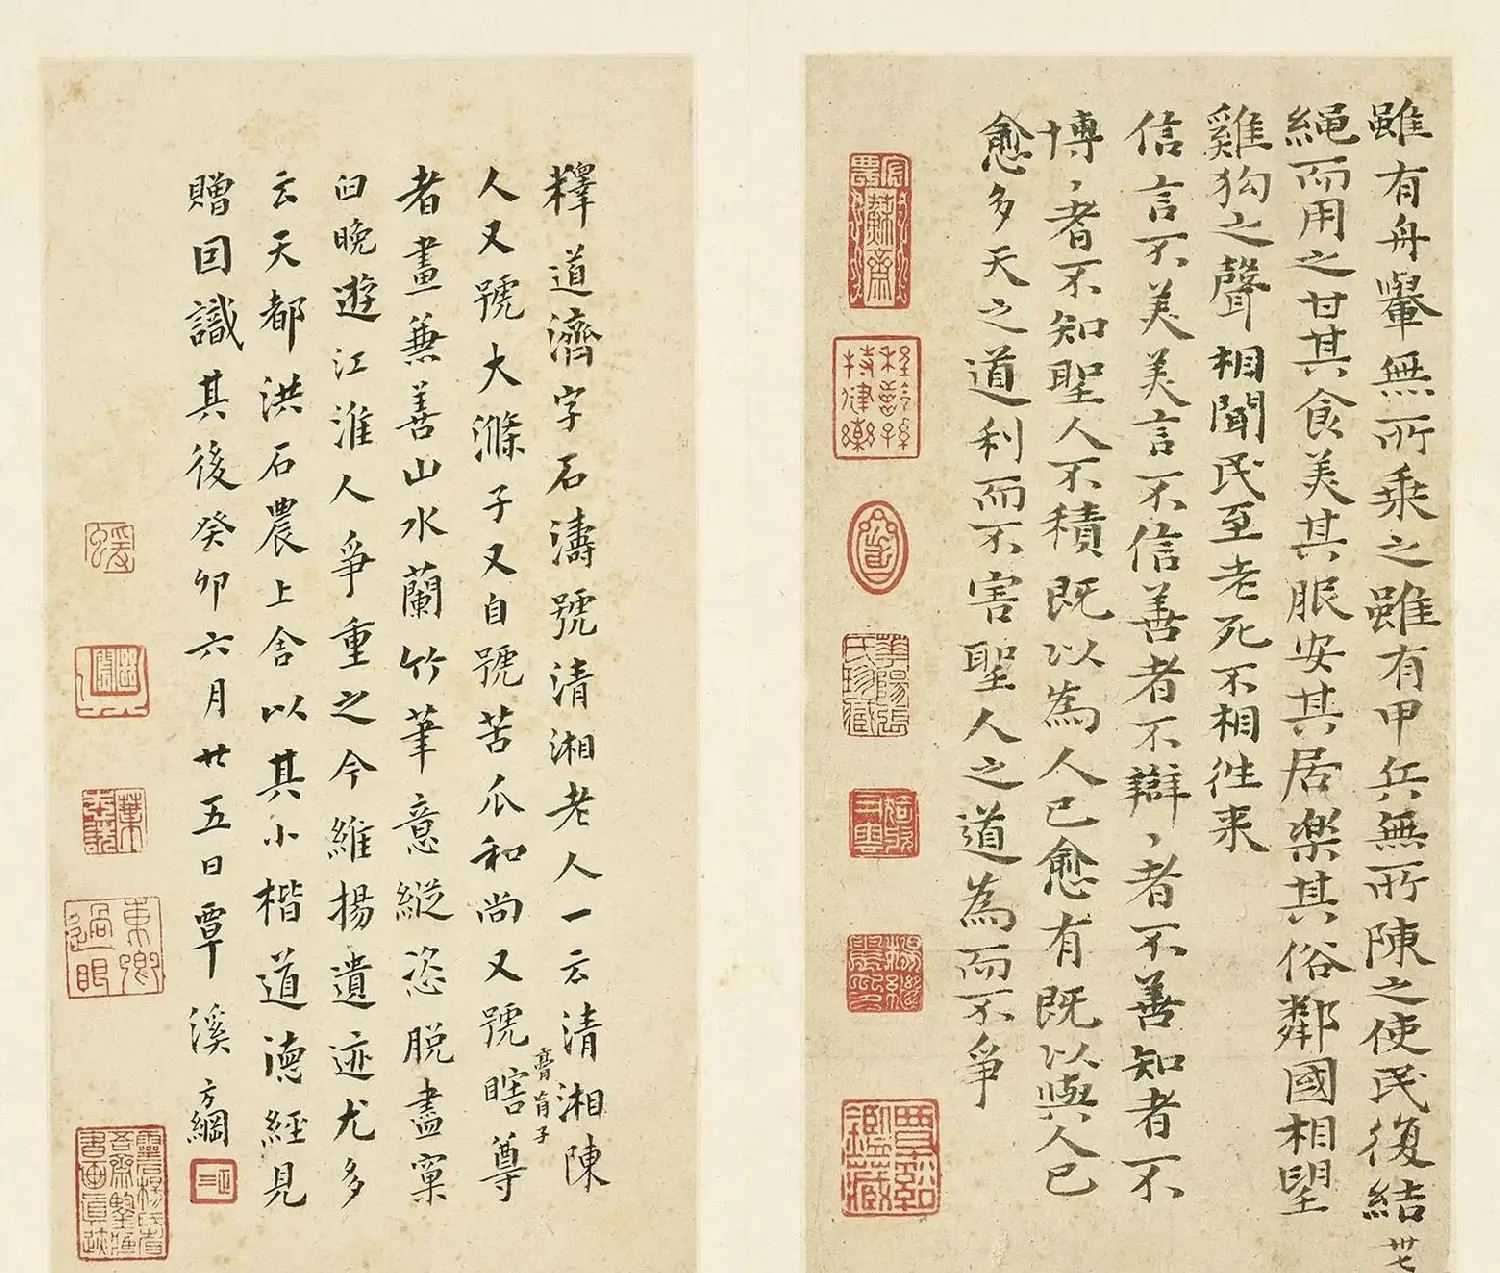 雖有舟轝無所乘之雖有甲兵無所陳之使民復結
繩而用之甘其食美其服安其居樂其俗鄰國相望
雞狗之聲相聞民至老死不相往来
信言不美美言不信善者不辯〻者不善知者不
博〻者不知聖人不積既以為人已愈有既以與人已
愈多天之道利而不害聖人之道為而不爭
蘇齋
覃谿鑑藏
釋道濟字石濤號清湘老人一云清湘陳
人又號大滌子又自號苦瓜和尚又號瞎尊
膏肓子
者畫兼善山水蘭竹筆意縱恣脱盡窠
臼晚遊江淮人爭重之今維揚遺迹尤多
云天都洪石農上舍以其小楷道德經見
贈因識其後癸卯六月廿五日覃溪方綱
東卿過眼